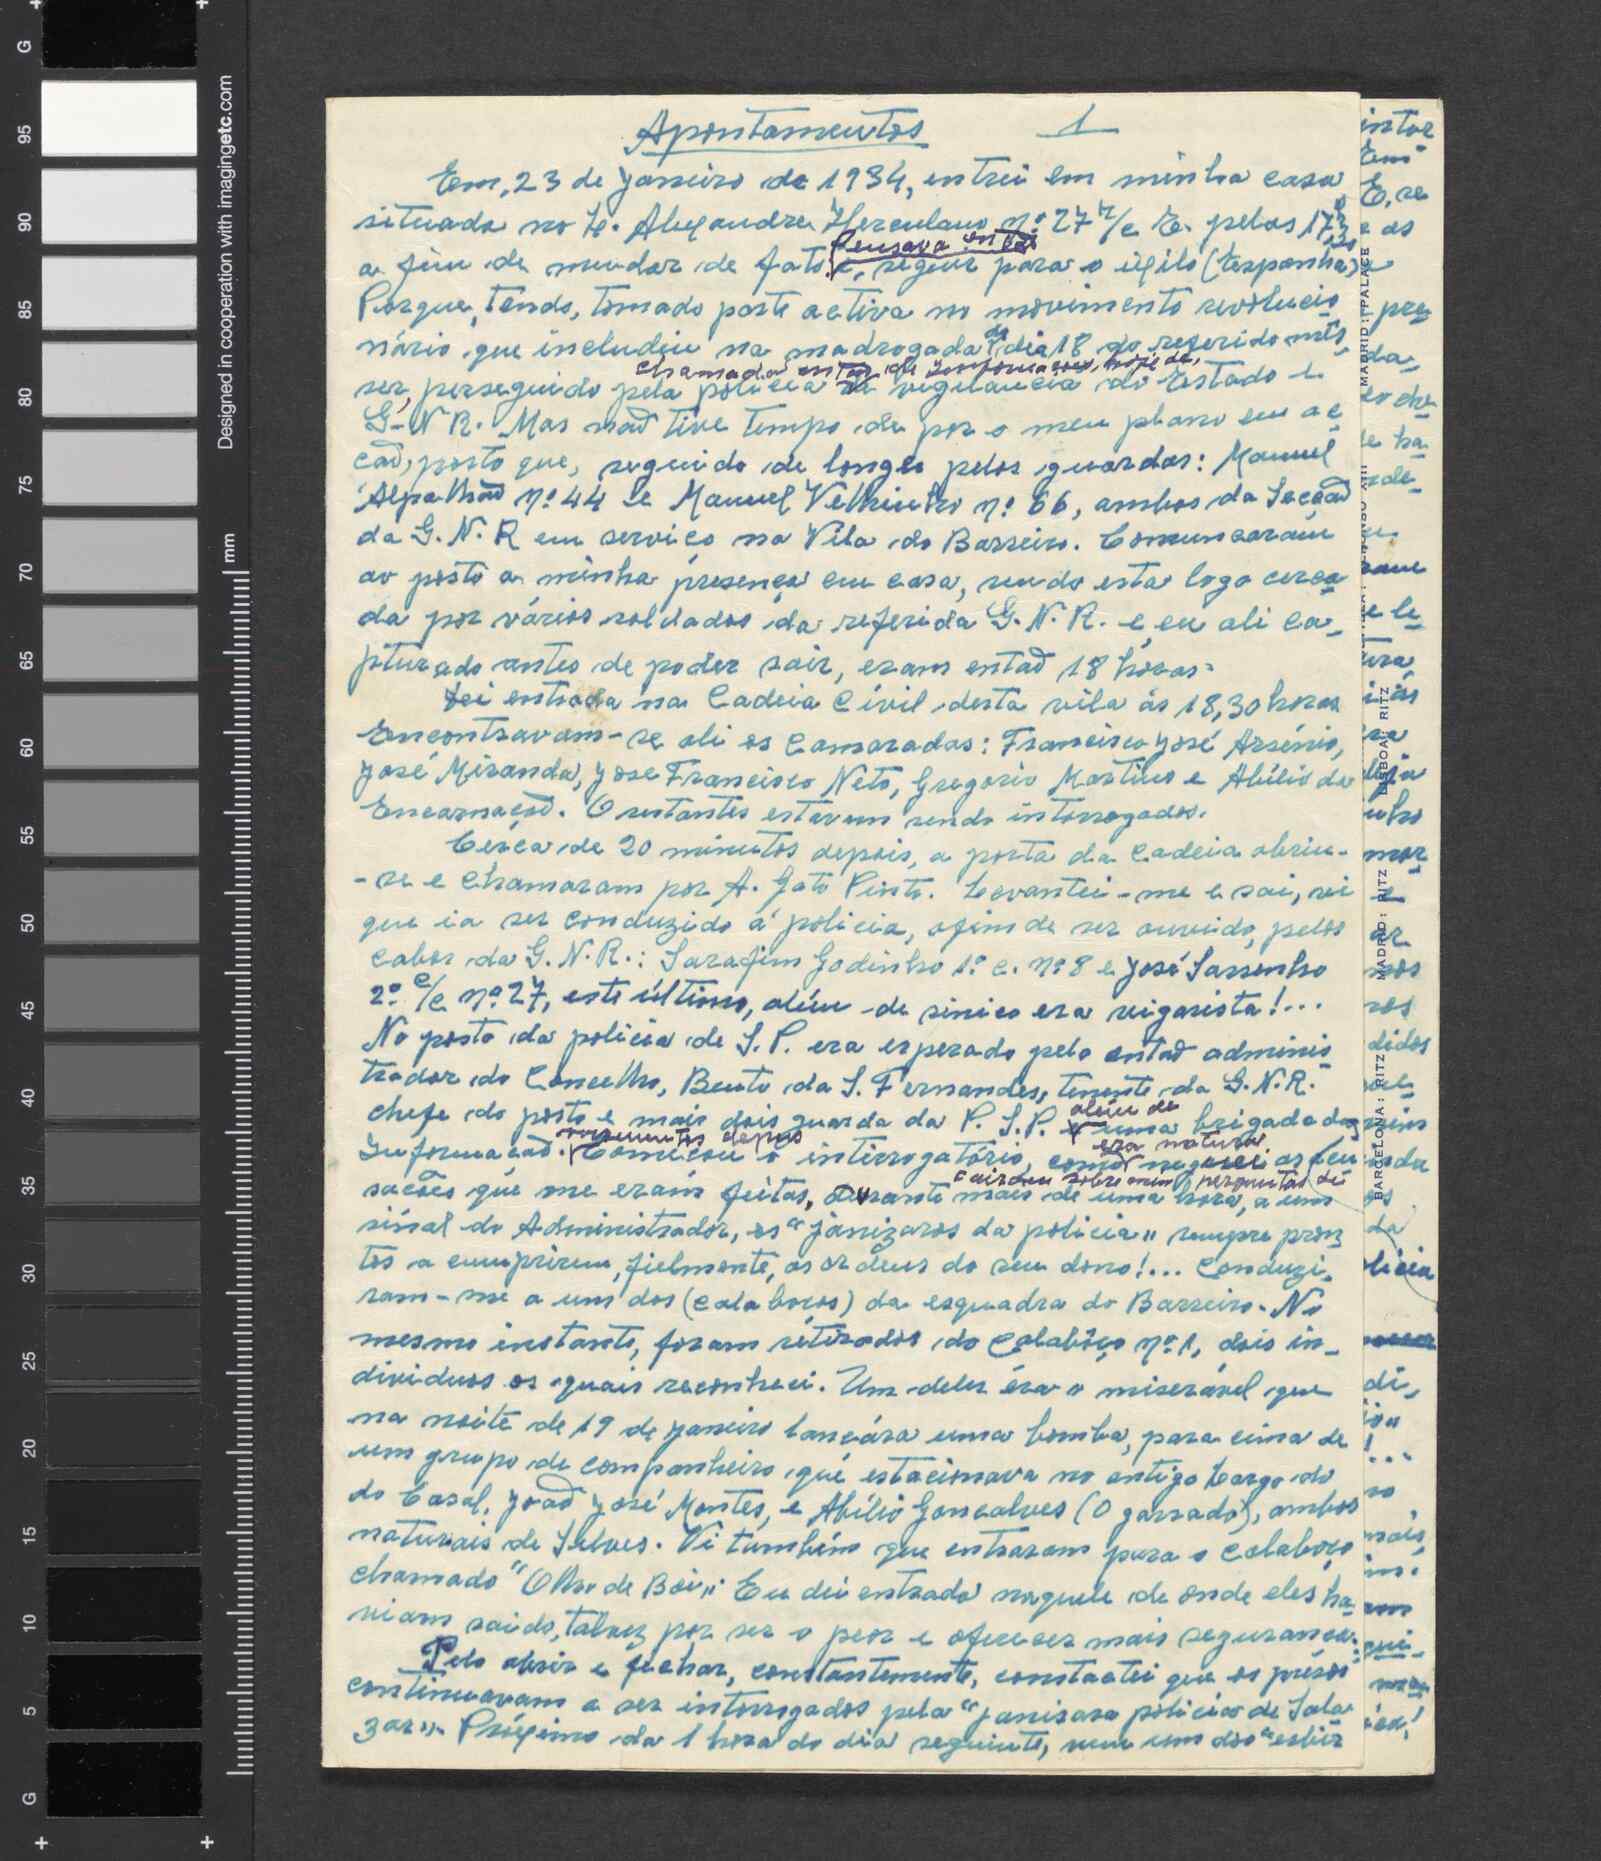 Apontamentos 1
Em, 23 de Janeiro de 1934, entrei em minha casa
situada no L. Alexandre Herculano nº 27 r/c E. pelas 17,30
Pensava então
a fim de mudar de fato e, seguir para o exilo (Espanha)
Porque, tendo, tomado parte activa no movimento revolucio
nário que includiu na madrogada do dia 18 do referido mês,
chamada então de Informações, hoje de,
ser, perseguido pela policia de vigilancia do Estado e
G-N R. Mas não tive tempo de por o meu plano em ac
ção, posto que, seguido de longe pelos guardas: Manuel
Alpalhão nº 44 e Manuel Velhinho nº 66, ambos da Secção
da G. N. R em serviço na Vila do Barreiro. Comuncaram
ao posto a minha presença em casa, sendo esta logo cerca
da por vários soldados da referida G. N. R. e eu ali ca-
pturado antes de poder sair, eram então 18 horas-
Dei entrada na Cadeia Cívil desta vila ás 18,30 horas
Encontravam-se ali os Camaradas: Francisco José Arsénio,
José Miranda, José Francisco Neto, Gregorio Martins e Abílio da
Encarnação. O restantes estavam sendo intorrogados.
Cêrca de 20 minutos depois, a porta da Cadeia abriu-
-se e chamaram por A. Gato Pinto. Levantei-me e sai, vi
que ia ser conduzido á policia, afim de ser ouvido, pelos
cabos da G. N. R.: Sarafim Godinho 1º c. nº 8 e José Sarrenho
2º c/c nº 27, este último, além de sinico era vigarista!...
No posto da policia de S. P. era esperado pelo então adminis
trador do Concelho, Bento da S. Fernandes, tenente da G. N. R.
chefe do posto e mais dois guarda da P. S. P. além de uma brigada das
Informação. momentos depois
Começou o interrogatório, como era natural neguei as acu
sações que me eram feitas, durante mais de uma hora, a um
cairam sobre mim perguntas de
sinal do Administrador, os "janizaros da policia" sempre pron
tos a cumprirem, fielmente, as ordens do seu dono!... Conduzi-
ram-me a um dos (calaboços) da esquadra do Barreiro. No
mesmo instante, foram retirados do Calabôço nº 1, dois in-
dividuos os quais reconheci. Um deles éra o miserável que
na noite de 19 de Janeiro lançára uma bomba, para cima de
um grupo de companheiro qué estacionava no antigo Largo do
do Casal, João José Montes, e Abílio Gonçalves (O garrado), ambos
naturais de Silves. Vi também que entraram para o calaboço
chamado "Olho de Boi" Eu dei entrada naquele de onde eles ha-
viam saido, talvez por ser o peor e oferecer mais segurança.
Pelo abrir e fechar, constantemente, constactei que os prêsos
continuavam a ser intorrogados pela "janisara policia de Sala
zar". Próximo da 1 hora do dia seguinte, num um dos "esbir
MADRID: PALACE
LISBOA: RITZ
MADRID: RITZ
BARCELONA: RITZ
Designed in cooperation with imagingetc.com
mm
G 95 90 85 80 75 70 65 60 55 50 45 40 35 30 25 20 15 10 5 G